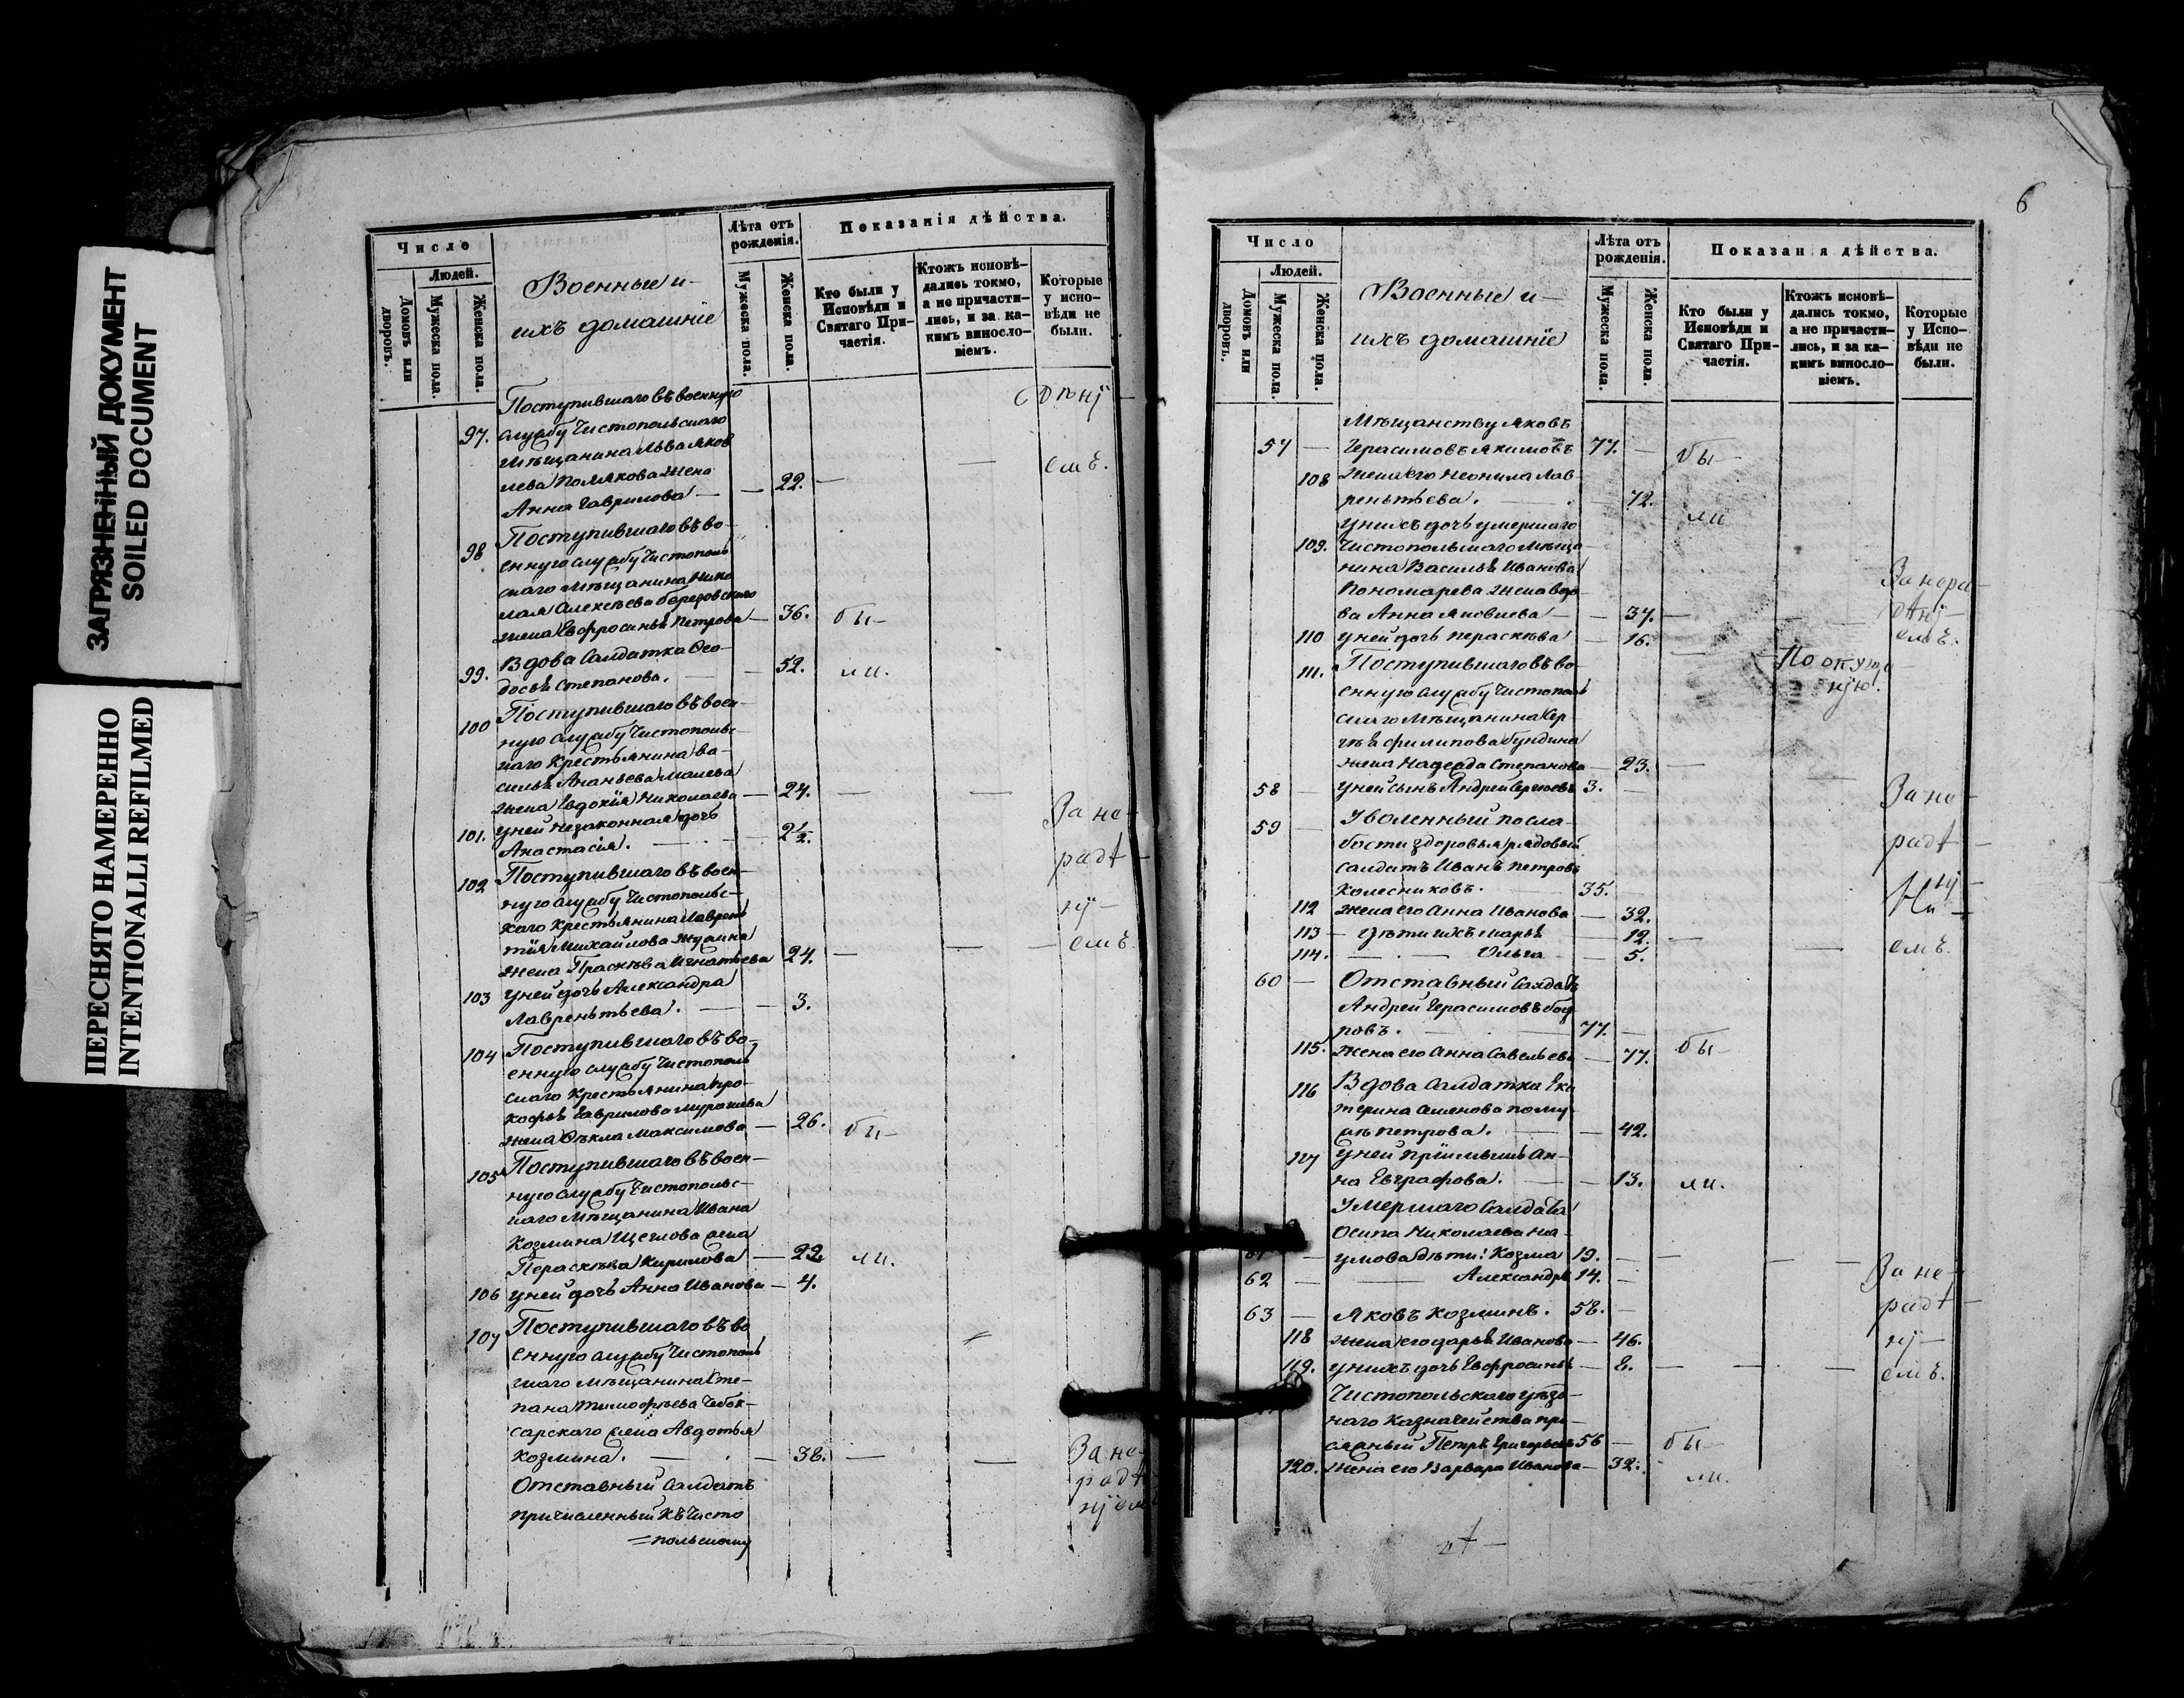 ЗАГРЯЗНЕННЫЙ ДОКУМЕНТ
SOILED DOCUMENT
ПЕРЕСНЯТО НАМЕРЕННО
INTENTIONALLI REFILMED
Число
Людей.
Домовъ или дворовъ.
Мужеска пола.
Женска пола.
Военные и
ихъ домашніе
Лѣта отъ рожденія.
Мужеска пола.
Женска пола.
Показанія дѣйства.
Кто были у Исповѣди и Святаго Причастія.
Ктожъ исповѣ-
дались токмо,
а не причасти-
лись, и за ка-
кимъ винослo-
віемъ.
Которые
у испо-
вѣди не
были.
Поступившаго въ военную
97. службу Чистопольскаго
Мѣщанина Льва Яков
лева Полякова жена
Анна Гаврилова — 22. — емъ.
Поступившаго въ во-
98 енную службу Чистополь
скаго Мѣщанина Нико
лая Алексѣева Березовскаго
жена Евфросинья Петрова — 36. бы-
99. Вдова Салдатка Ѳео-
досья Степанова. — 52. ли.
100 Поступившаго въ воен-
ную службу Чистопольс-
каго Крестьянина Ва-
силья Ананьева
жена Евдокія Николаева — 24. — —
101. У ней незаконная дочь
Анастасія. — 2½. За не-
радѣ-
102 Поступившаго въ воен-
ную службу Чистопольс-
каго Крестьянина Лаврен
тія Михайлова
жена Прасковья Игнатьева 24. — — емъ.
103 У ней дочь Александра
Лаврентьева. — 3.
104 Поступившаго въ во-
енную службу Чистополь
скаго Крестьянина Про-
кофья Гаврилова
жена Ѳекла Максимова — 26. бы-
105 Поступившаго въ воен-
ную службу Чистопольс-
каго Мѣщанина Ивана
Козмина Щеглова жена
Параскева Кирилова — 22. ли.
106 У ней дочь Анна Иванова — 4.
107 Поступившаго въ во
енную службу Чистополь
скаго Мѣщанина Сте-
пана Тимофѣева Чебок-
сарскаго жена Авдотья
Козмина. — 38. — — За не-
радѣ
Отставный Салдатъ
причисленный къ Чисто
=польскому
6
Число
Людей.
Домовъ или дворовъ.
Мужеска пола.
Женска пола.
Военные и
ихъ домашніе
Лѣта отъ рожденія.
Мужеска пола.
Женска пола.
Показанія дѣйства.
Кто были у Исповѣди и Святаго Причастія.
Ктожъ исповѣ-
дались токмо,
а не причасти-
лись, и за ка-
кимъ винослo-
віемъ.
Которые
у Испо-
вѣди не
были.
Мѣщанству Яковъ
57 — Герасимовъ Якимовъ 77. — бы-
108 Жена его Неонила Лав-
рентьева. — 72. ли
У нихъ дочь умершаго
109. Чистопольскаго Мѣща
нина Василья Иванова
Пономарева жена вдо-
ва Анна Яковлева — 37. —
110 У ней дочь Параскева — 16. емъ.
111. Поступившаго въ во-
енную службу Чистополь
скаго Мѣщанина Сер-
гѣя Филипова Бундина
жена Надежда Степанова — 23. —
58 — У ней сынъ Андрей Сергѣевъ 3. — За не-
59 — Уволенный по сла-
бости здоровья рядовый радѣ-
салдатъ Иванъ Петровъ
Колесниковъ. 35.
112 Жена его Анна Иванова — 32.
113 — Дѣти ихъ Марья — 12. — —
114. — Ольга — 5. емъ.
60 — Отставный Салдатъ
Андрей Герасимовъ
ровъ. — 77. —
115. Жена его Анна Савельева — 77. бы-
116 Вдова Салдатка Ека
терина Семенова по му-
жѣ Петрова. — 42.
117 У ней пріимышъ Ан-
на Евграфова. — 13. ли.
Умершаго Салдата
Осипа Николаева На-
61 — умова дѣти: Козма 19. —
62 — Александръ 14. — За не-
63 — Яковъ Козминъ. 58. — радѣ-
118 Жена его Дарья Иванова — 46.
119. У нихъ дочь Евфросинья — 8. — — — емъ.
Чистопольскаго уѣзд-
наго Казначейства при-
сяжный Петръ Григорьевъ 56 — бы-
120. Жена его Варвара Иванова — 32. ли.